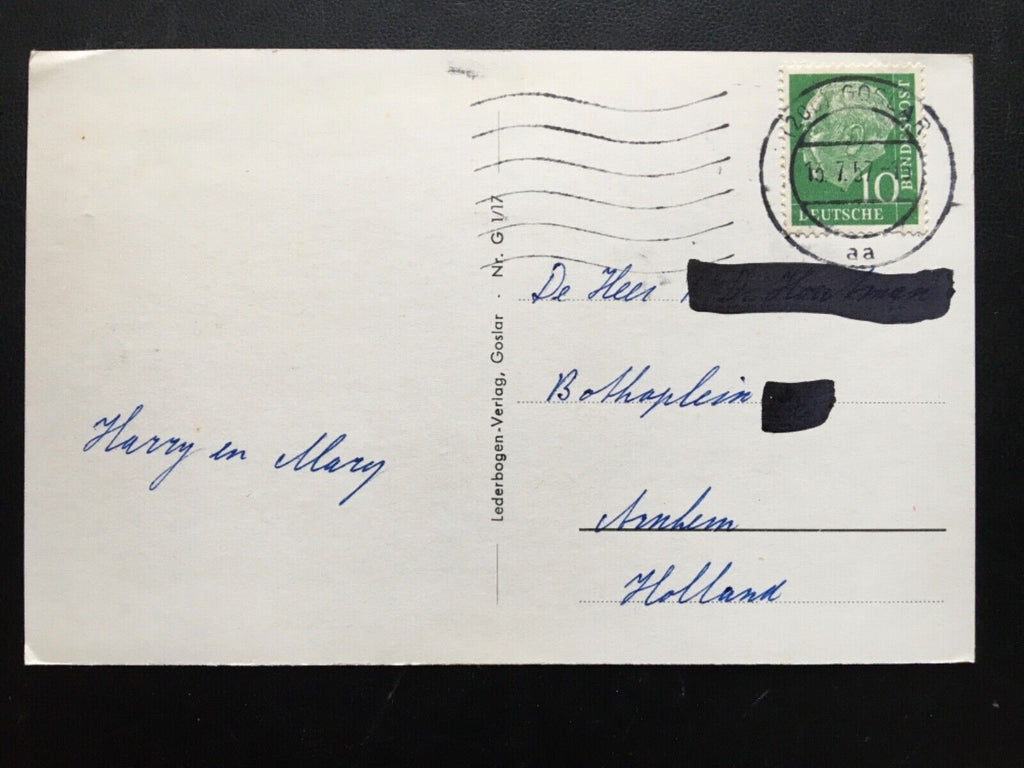 GOSLAR
7.57
aa
10
BUNDESPOST
DEUTSCHE
Lederbogen-Verlag, Goslar · Nr. G 1/17
De Heer
Bothaplein
Arnhem
Holland
Harry en Mary